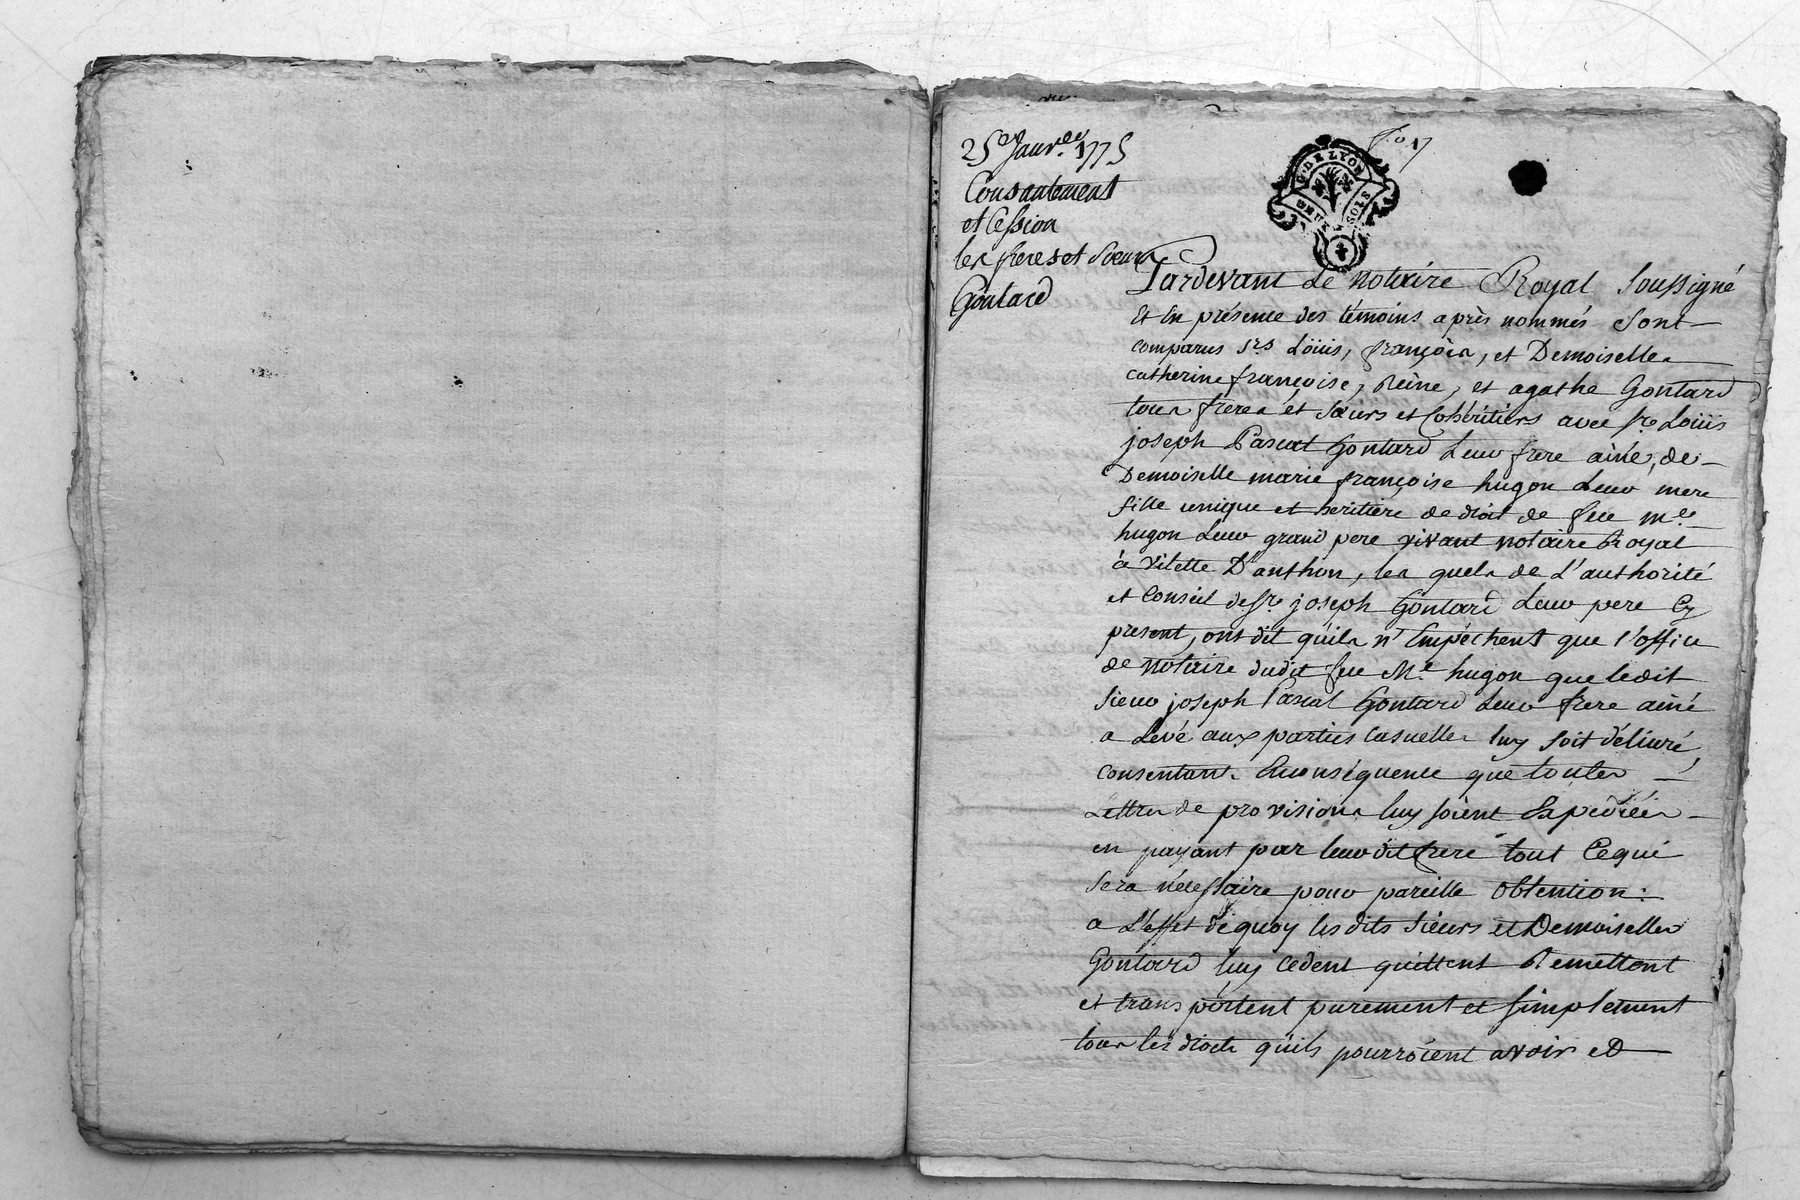 25e Janv.er 1775
Consentement
et Cession
les freres et soeurs
Gontard
fo 17
G. DE LYON
UN SOLS
Pardevant Le notaire Royal soussigné
Et En présence des témoins après nommés sont
comparus Srs Loüis, françois, et Demoiselles
catherine françoise, Reine, et agathe Gontard
tous freres et soeurs et Cohéritiers avec sr. Loüis
joseph Pascal Gontard Leur frere ainé, de
Demoiselle marie françoise hugon Leur mere
fille unique et heritiere de droit de feu me.
hugon Leur grand pere vivant notaire Royal
à vilette D'anthon, les quels de L'authorité
et Conseil de sr. joseph Gontard Leur pere Cy
present, ont dit quils n'Empéchent que l'office
de notaire dudit feu Me. hugon que ledit
sieur joseph Pascal Gontard Leur frere ainé
a Levé aux parties Casuelles luy soit délivré,
consentant Enconséquence que toutes
Lettres de provisions luy soient Expediées
en payant par leurdit frere tout Cequi
sera nécessaire pour pareille obtention:
a L'effet dequoy lesdits sieurs et Demoiselles
Gontard luy cedent quittent Remettent
et transportent purement et simplement
tous les droits quils pourroient avoir et